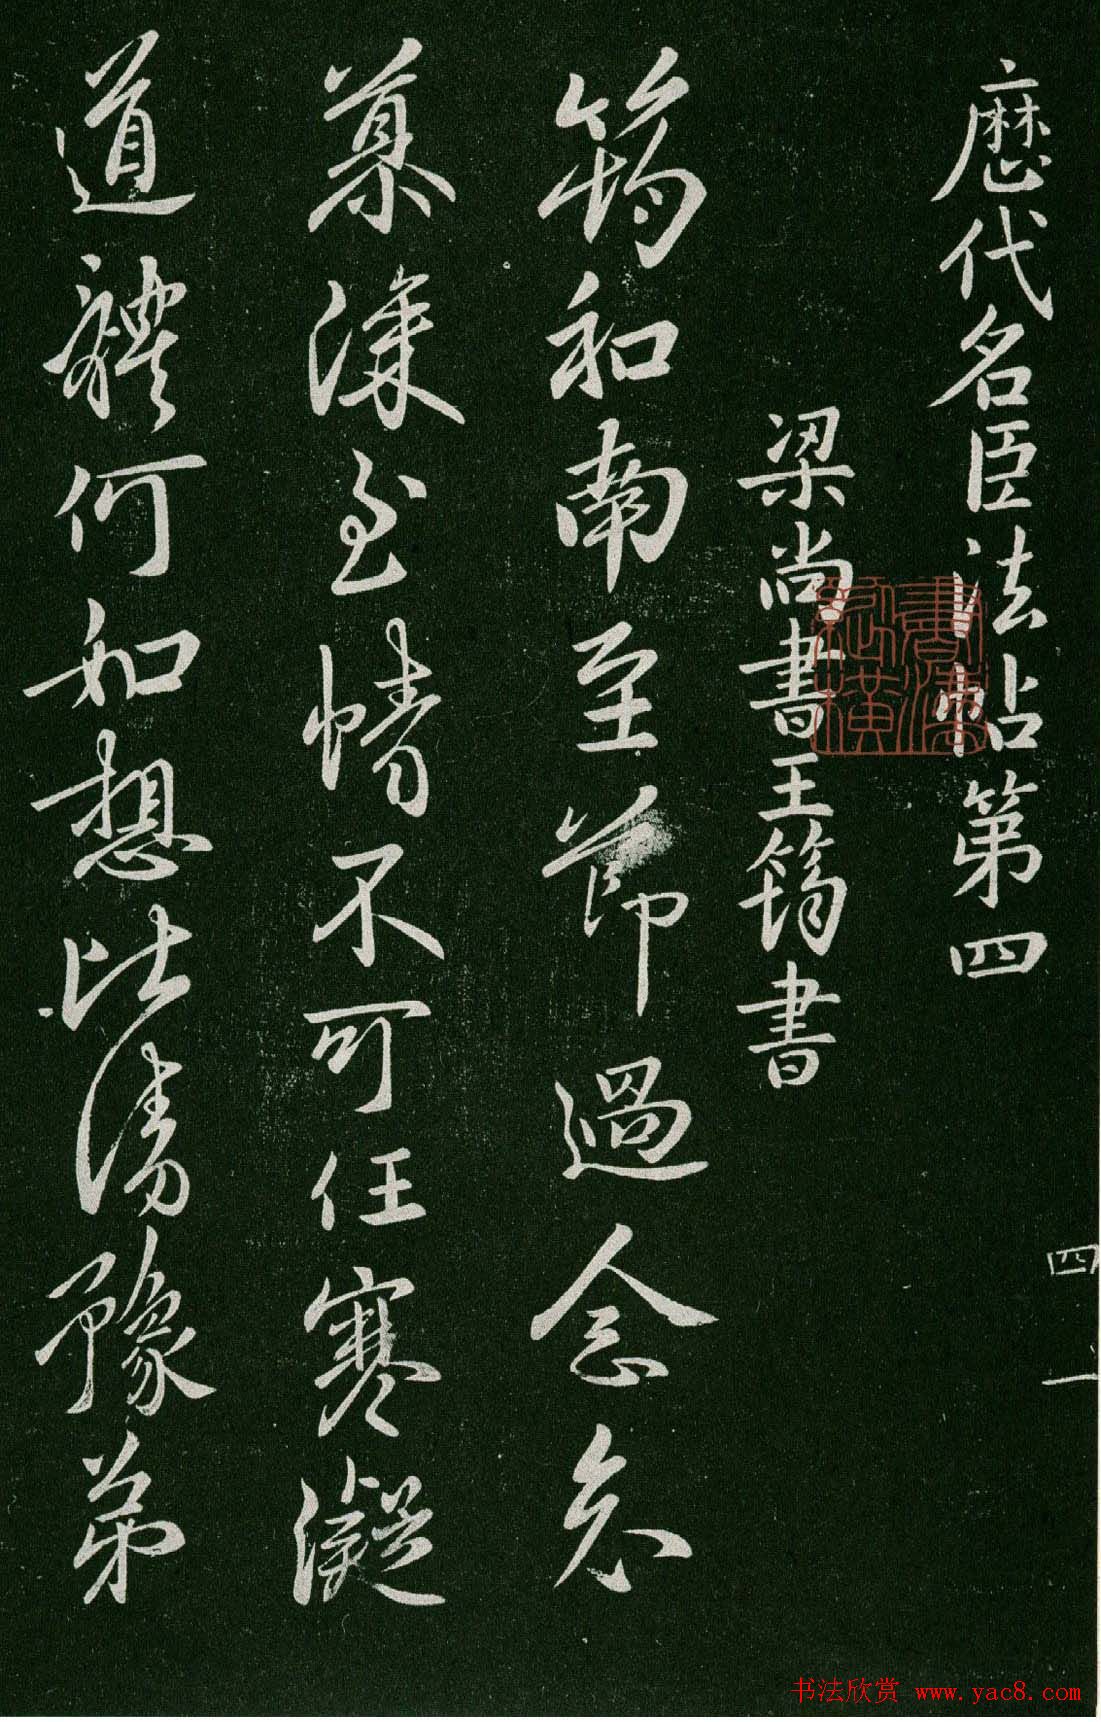 歷代名臣法帖第四
梁尚書王筠書
筠和南至節過念哀
慕深至情不可任寒凝
道體何如想比清豫弟
四 一
书法欣赏 www.yac8.com